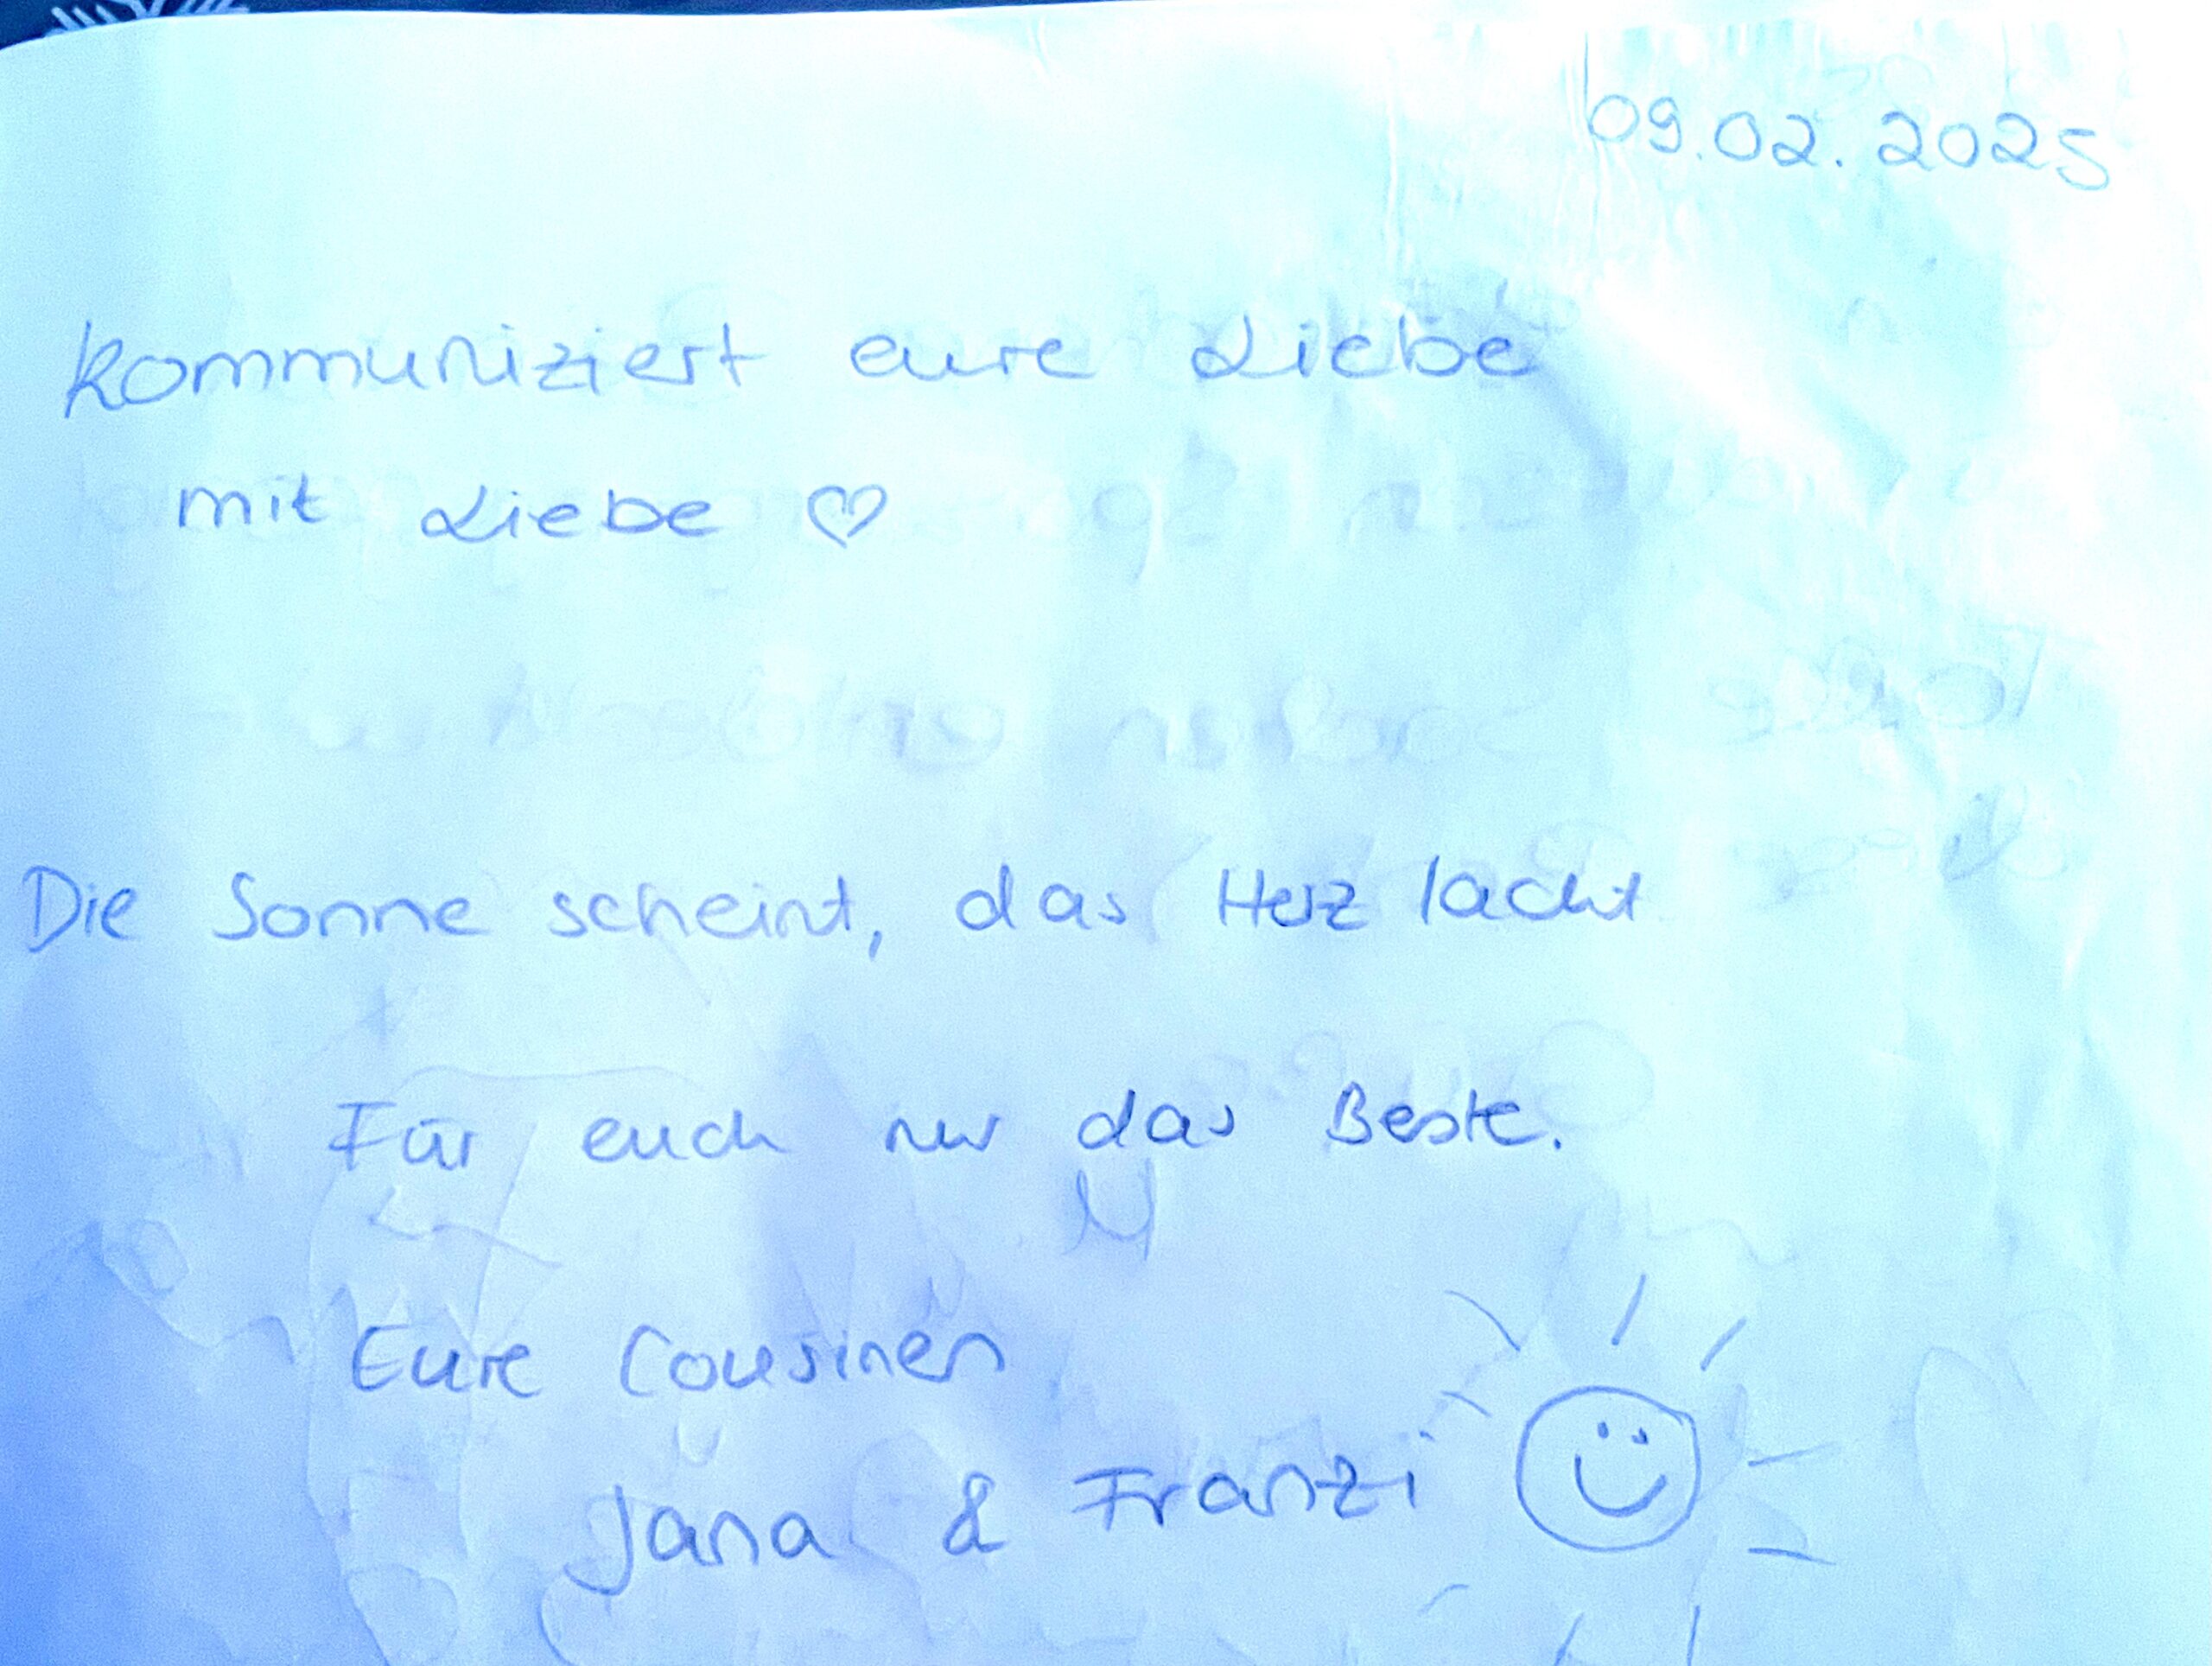 09.02.2025
Kommuniziert eure Liebe
mit Liebe ♡
Die Sonne scheint, das Herz lacht
Für euch nur das Beste.
Eure Cousinen
Jana & Franzi